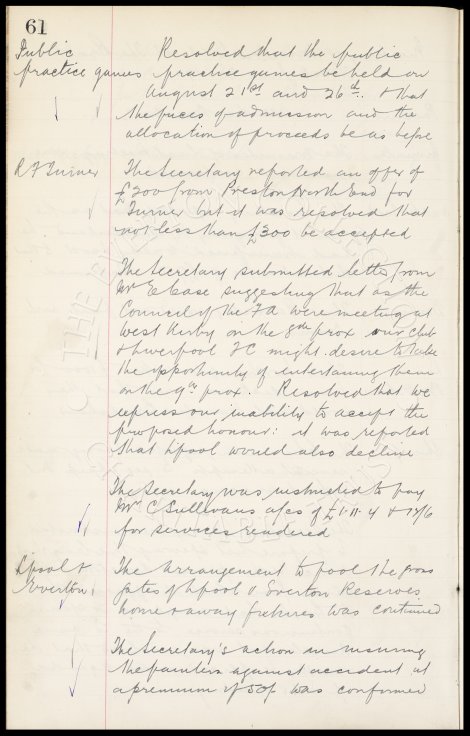 61
Public
practice games
Resolved that the public
practice games be held on
August 21st and 26th. & that
the prices of admission and the
allocation of proceeds be as before
R F Turner
The Secretary reported an offer of
£200 from Preston North End for
Turner but it was resolved that
not less than £300 be accepted
The Secretary submitted letter from
Mr E Case suggesting that as the
Council of the FA were meeting at
West Kirby on the 8th prox our club
& Liverpool FC might desire to take
the opportunity of entertaining them
on the 9th prox. Resolved that we
express our inability to accept the
proposed honour: it was reported
that L'pool would also decline
The Secretary was instructed to pay
Mr C Sullivans a/cs of £1.11.4 &
for services rendered
L'pool &
Everton
The arrangement to pool the gross
gates of L'pool & Everton Reserves
home & away fixtures was continued
The Secretary's action in insuring
the painters against accident at
a premium of 50/- was confirmed